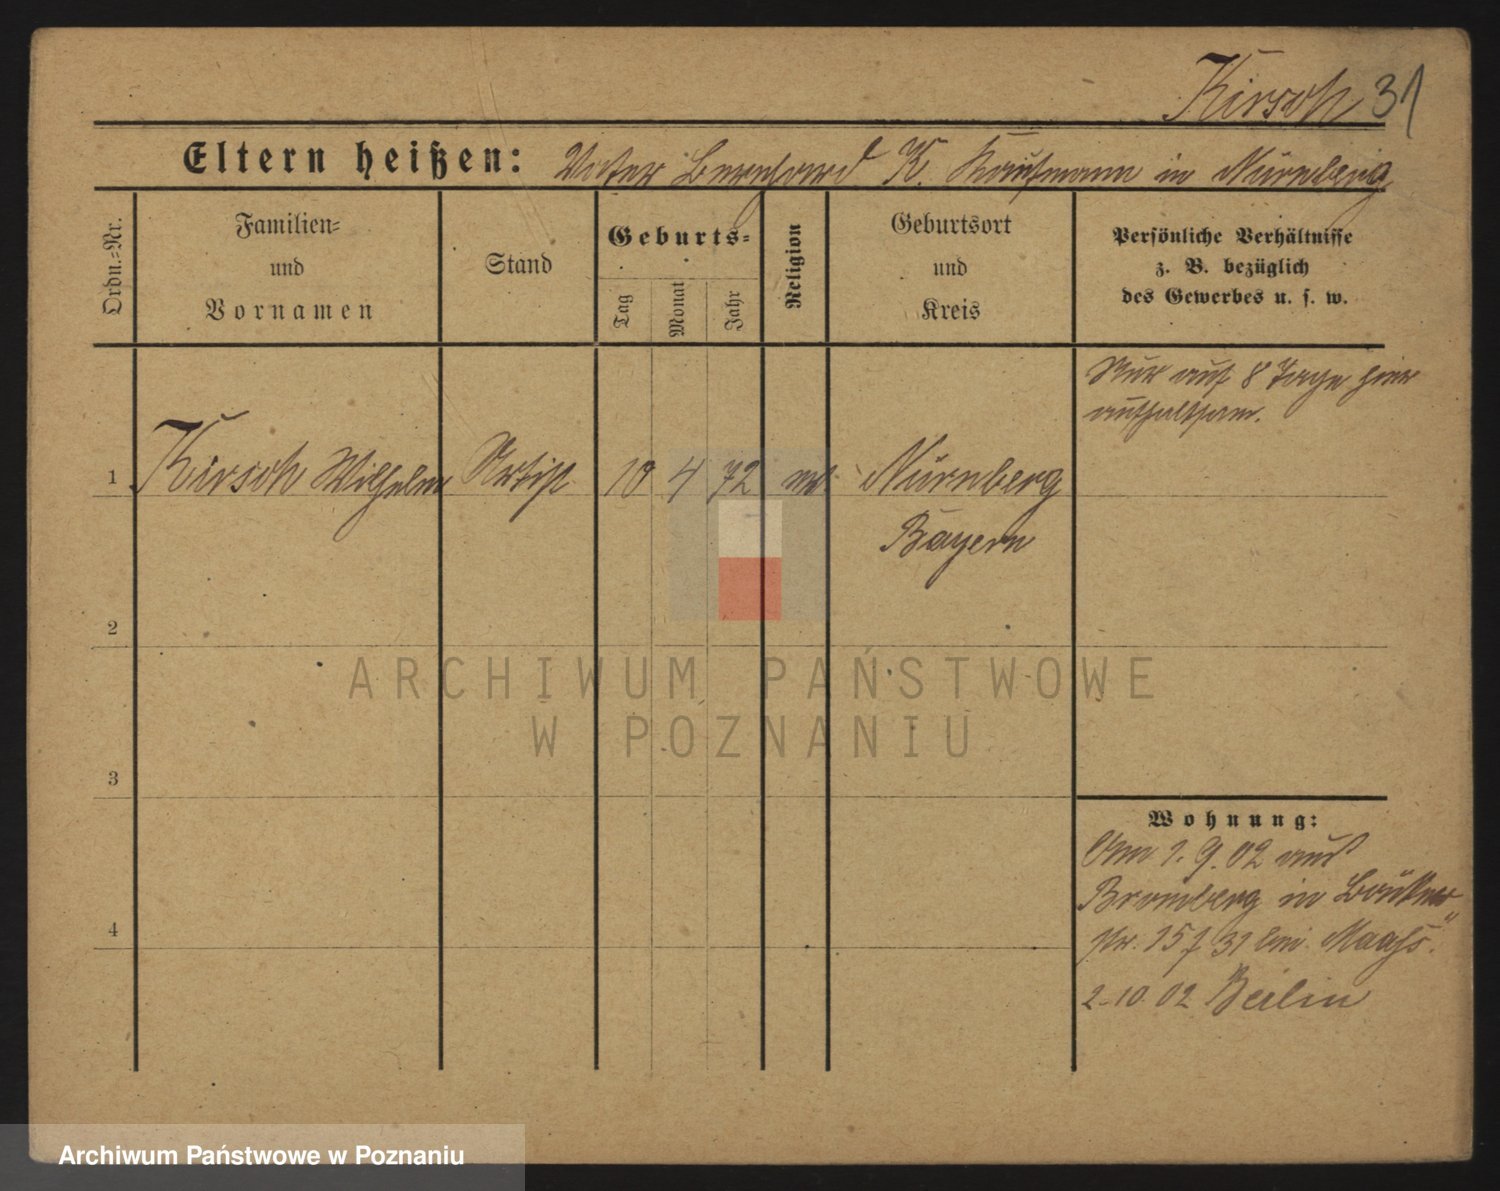 Kirsch 31
Eltern heißen: Vater Bernhard K. Kaufmann in Nürnberg
Ordn.-Nr.
Familien-
und
Vornamen
Stand
Geburts-
Tag
Monat
Jahr
Religion
Geburtsort
und
Kreis
Persönliche Verhältnisse
z. B. bezüglich
des Gewerbes u. s. w.
Nur auf 8 Tage hier
aufhaltsam.
1 Kirsch Wilhelm Artist 10 4 72 Nürnberg
Bayern
2
3
4
Wohnung:
Am 1.9.02 aus
Bromberg in
str. 15 31 bei Maaß.
2.10.02 Berlin
ARCHIWUM PAŃSTWOWE
W POZNANIU
Archiwum Państwowe w Poznaniu